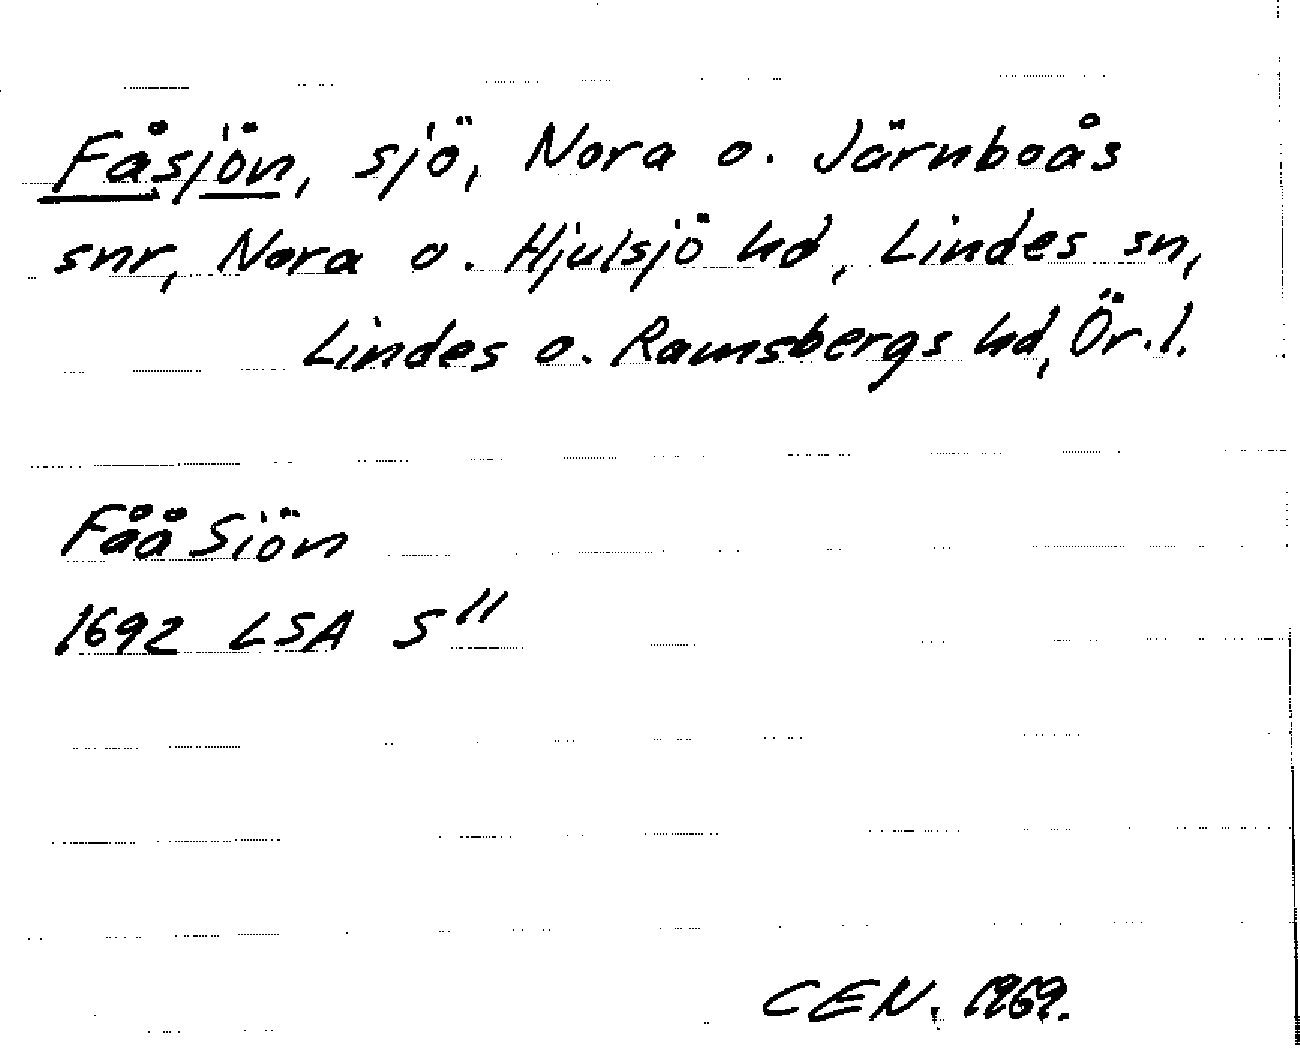 Fåsjön, sjö, Nora o. Järnboås
snr, Nora o. Hjulsjö hd, Lindes sn,
Lindes o. Ramsbergs hd, Ör. l.
Fåå Siön
1692 LSA S 11
CEN. 1969.